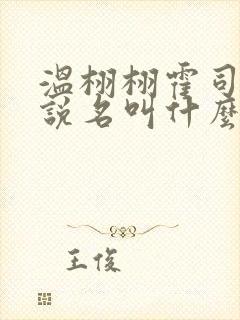 溫栩栩霍司
說名叫什麼
王俊